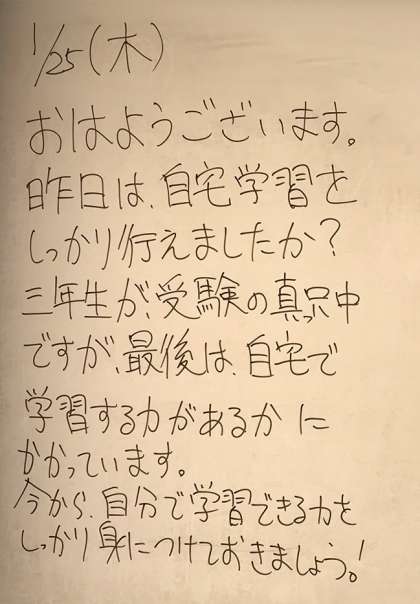 1/25(木)
おはようございます。
昨日は、自宅学習を
しっかり行えましたか?
三年生が、受験の真っ只中
ですが、最後は、自宅で
学習する力があるかに
かかっています。
今から、自分で学習できる力を
しっかり身につけておきましょう。!